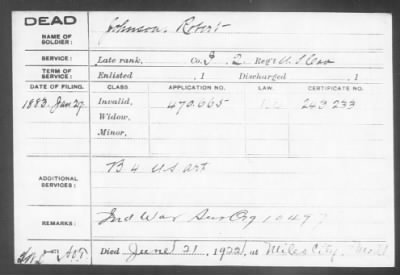 DEAD
NAME OF SOLDIER: Johnson, Robert
SERVICE: Late rank, Co. 2 Reg't U.S. Cav
TERM OF SERVICE: Enlisted , 1 Discharged , 1
DATE OF FILING. CLASS APPLICATION NO. LAW. CERTIFICATE NO.
1883. Jan 29. Invalid, 470.665 243 233
Widow,
Minor,
ADDITIONAL SERVICES: B 4 US Art
REMARKS: Ind War Sur Org 10497
Died June 21, 1922, at Miles City, Mont